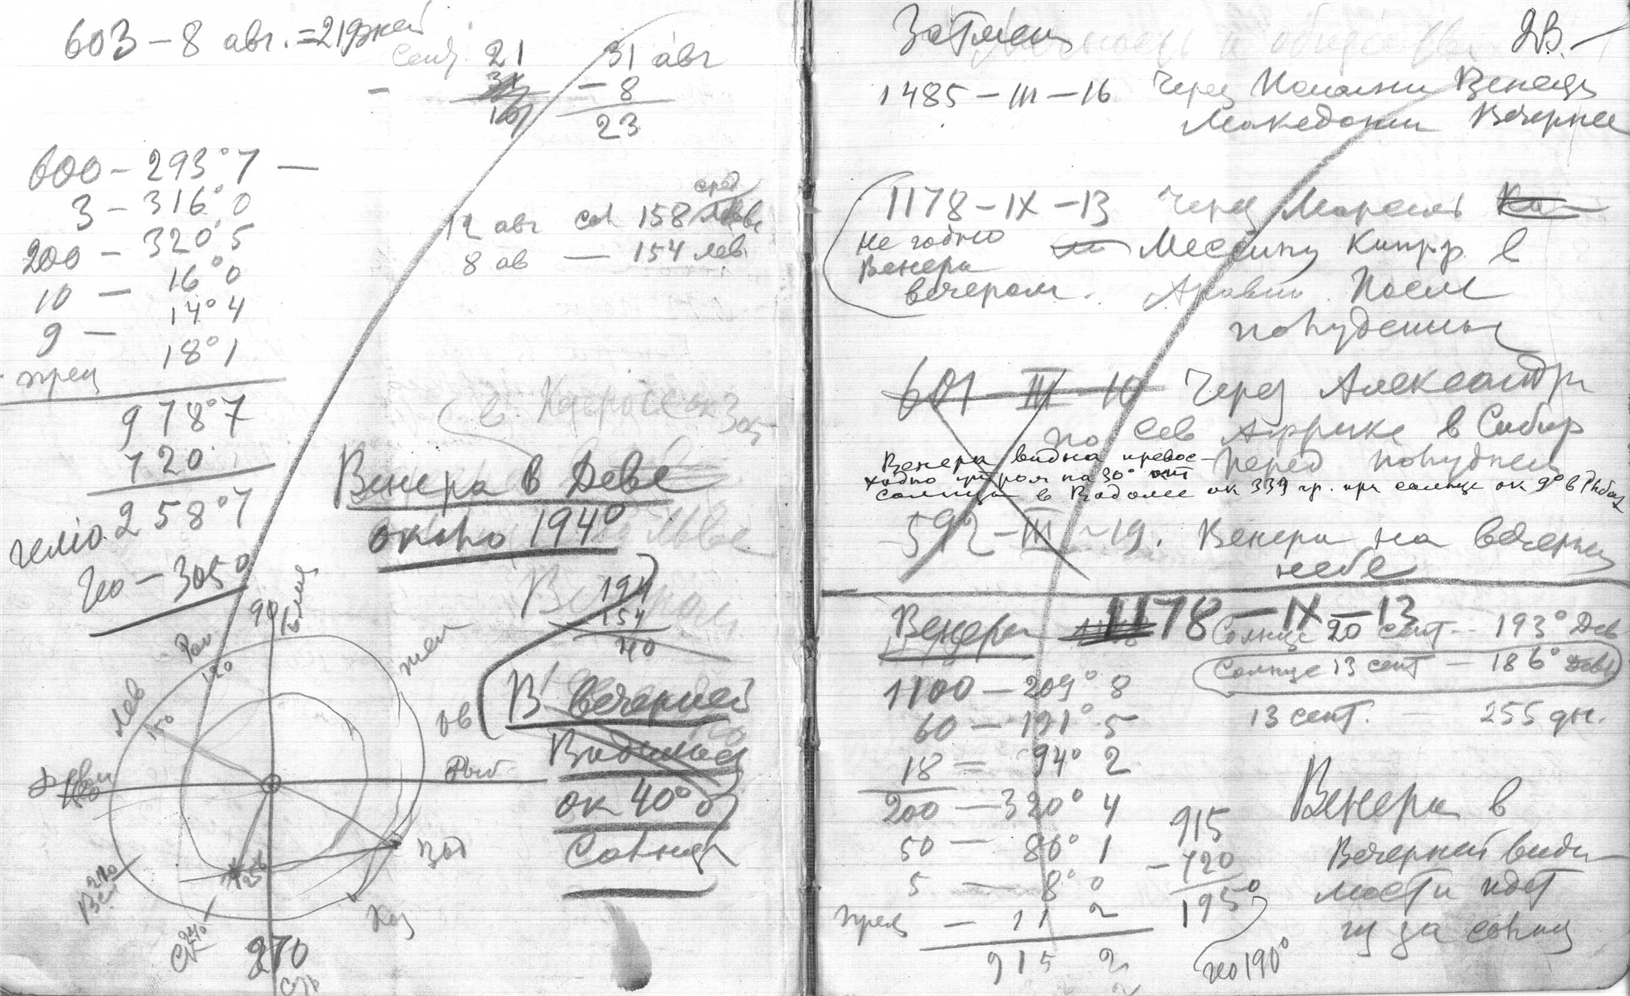 603 – 8 авг. = 219 дней
Сент. 21
31 авг
– 8
23
600 – 293°7 —
3 – 316°0
200 – 320°5
10 — 16°0
9 — 14°4
прец 18°1
978°7
720
гелио 258°7
Гео – 305°0
12 авг сол 158 сред
8 ав — 154 лев
Венера в Деве
около 194°
194
154
40
В вечерней
Видимос
ок 40° о
Солнца
90
Лев
150
Рыб
Вод
Коз
270
Затмен
1485 – III – 16 Через Испании Венеция
Македония Вечернее
1178 – IX – 13 Через Марсель
Не годно
Венера
вечером.
Мессину Кипр в
Аравию После
полуденны
601 – III – 10 Через Александри
по сев Африке в Сибир
перед полуднем
Венера видна превос-
ходно утром на 30° от
солнца в Водолее ок 339 гр. при солнце ок 9° в Рыбах
592 – III – 19. Венера на вечернем
небе
Венера 1178 – IX – 13
Солнце 20 сент – 193° Дев
Солнце 13 сент – 186° Девы
13 сент. — 255 дн.
1100 – 209° 8
60 – 191° 5
18 = 94° 2
200 – 320° 4
50 — 80° 1
5 — 8° 0
прец – 11 2
915 2
915
– 720
195°
гео 190°
Венера в
Вечерней види
мости идет
из за солнц